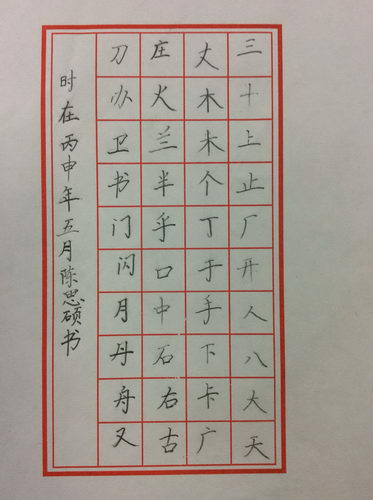 三十上止厂开人八大天
丈木木个丁于手下卡广
庄火兰半乎口中石右古
刀办卫书门闪月丹舟又
时在丙申年五月陈思硕书